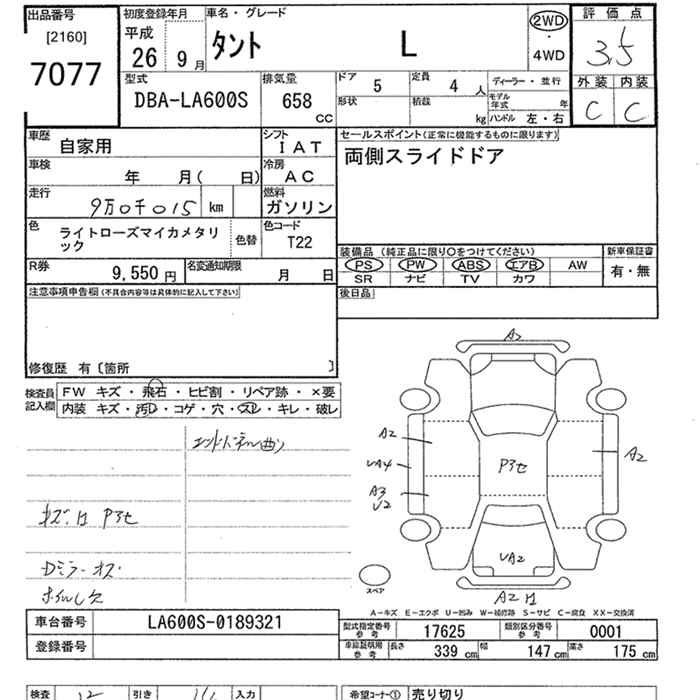 出品番号 初度登録年月 車名・グレード 評価点
[2160] 平成 タント L 2WD・4WD 3.5
7077 26年 9月
外装 内装
型式 排気量 ドア 5 定員 4人 ディーラー・並行
DBA-LA600S 658 CC 形状 積載 kg モデル年式 年 C C
ハンドル 左・右
車歴 自家用 シフト IAT セールスポイント(正常に機能するものに限ります)
両側スライドドア
車検 年 月( 日) 冷房 AC
走行 9万0千015 km 燃料 ガソリン
色 ライトローズマイカメタリック 色替 色コード T22
装備品 (純正品に限り○をつけてください) 新車保証書
R券 9,550円 名変通知期限 月 日 PS PW ABS エアB AW 有・無
SR ナビ TV カワ
注意事項申告欄(不具合内容等は具体的に記入して下さい) 後日品
修復歴 有〔箇所 〕
検査員記入欄 FW キズ・飛石・ヒビ割・リペア跡・×要
内装 キズ・汚レ・コゲ・穴・スレ・キレ・破レ
A2
A2
UA4
A3
U2
Pスセ
A2
UA2
スペア
キズ・凹 Pスセ
Dミラーキズ・
ホイルキズ
A-キズ E-エクボ U-凹み W-補修跡 S-サビ C-腐食 XX-交換済
車台番号 LA600S-0189321 型式指定番号 参考 17625 類別区分番号 参考 0001
登録番号 車庫証明用 参考 長さ 339cm 幅 147cm 高さ 175cm
検査 引き 入力 希望コーナー① 売り切り